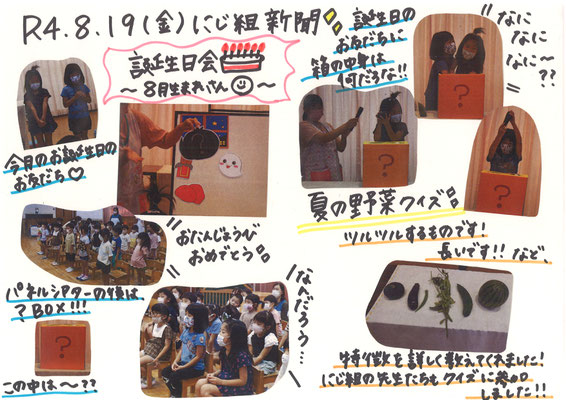 R4.8.19(金)にじ組新聞
誕生日会
～8月生まれさん～
今月のお誕生日の
お友だち♡
"おたんじょうび
おめでとう"
パネルシアターの後は、
?BOX!!!
?
この中は～??
なんだろう…
誕生日の
お友だちに
箱の中身は
何だろな!!
"なに
なに
なに～
??"
?
?
?
夏の野菜クイズ
ツルツルするものです!
長いです!!など、
特徴を詳しく教えてくれました!
にじ組の先生たちもクイズに参加
しました!!